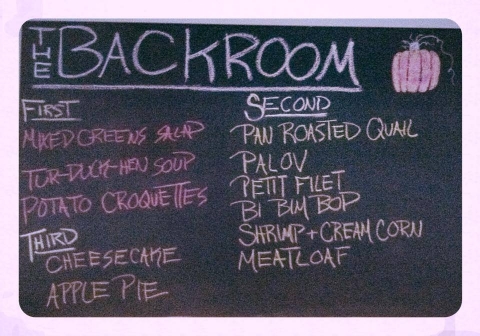 THE BACKROOM
FIRST
MIXED GREENS SALAD
TUR-DUCK-HEN SOUP
POTATO CROQUETTES
THIRD
CHEESECAKE
APPLE PIE
SECOND
PAN ROASTED QUAIL
PALOV
PETIT FILET
BI BIM BOP
SHRIMP + CREAM CORN
MEATLOAF